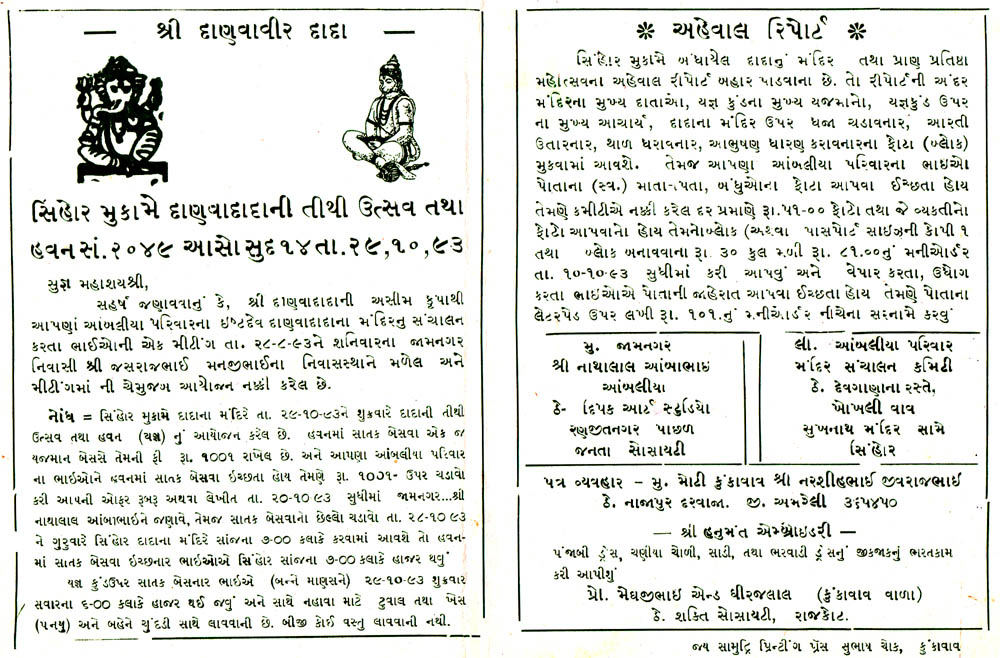 — શ્રી દાણવાવીર દાદા —
સિંહોર મુકામે દાણવાદાદાની તીથી ઉત્સવ તથા
હવન સં. ૨૦૪૯ આસો સુદ ૧૪ તા. ૨૯,૧૦,૯૩
સુજ્ઞ મહાશયશ્રી,
સહર્ષ જણાવવાનું કે, શ્રી દાણવાદાદાની અસીમ કૃપાથી
આપણાં આંબલીયા પરિવારના ઇષ્ટદેવ દાણવાદાદાના મંદિરનુ સંચાલન
કરતા ભાઈઓની એક મીટીંગ તા. ૨૮-૮-૯૩ને શનિવારના જામનગર
નિવાસી શ્રી જસરાજભાઈ મનજીભાઈના નિવાસસ્થાને મળેલ અને
મીટીંગમાં ની ચેમુજબ આયોજન નક્કી કરેલ છે.
નોંધ = સિંહોર મુકામે દાદાના મંદિરે તા. ૨૯-૧૦-૯૩ને શુક્રવારે દાદાની તીથી
ઉત્સવ તથા હવન (યજ્ઞ) નું આયોજન કરેલ છે. હવનમાં સાતક બેસવા એક જ
યજમાન બેસસે તેમની ફી રૂા. ૧૦૦૧ રાખેલ છે. અને આપણા આંબલીયા પરિવાર
ના ભાઈઓને હવનમાં સાતક બેસવા ઇચ્છતા હોય તેમણે રૂા. ૧૦૦૧- ઉપર ચડાવો
કરી આપની ઓફર રૂબરૂ અથવા લેખીત તા. ૨૦-૧૦ ૯૩ સુધીમાં જામનગર...શ્રી
નાથાલાલ આંબાભાઇને જણાવે, તેમજ સાતક બેસવાનો છેલ્લો ચડાવો તા. ૨૮-૧૦ ૯૩
ને ગુરૂવારે સિંહોર દાદાના મંદિરે સાંજના ૭-૦૦ કલાકે કરવામાં આવશે તો હવન-
માં સાતક બેસવા ઇચ્છનાર ભાઈઓએ સિંહોર સાંજના ૭-૦૦ કલાકે હાજર થવું
યજ્ઞ કુંડઉપર સાતક બેસનાર ભાઈએ (બન્ને માણસને) ૨૯-૧૦-૯૩ શુક્રવાર
સવારના ૬-૦૦ કલાકે હાજર થઈ જવું અને સાથે નહાવા માટે ટુવાલ તથા ખેસ
(પનયુ) અને બહેને ચુંદડી સાથે લાવવાની છે. બીજી કોઈ વસ્તુ લાવવાની નથી.
❊ અહેવાલ રિપોર્ટ ❊
સિંહોર મુકામે બંધાયેલ દાદાનું મંદિર તથા પ્રાણ પ્રતિષ્ઠા
મહોત્સવના અહેવાલ રીપોર્ટ બહાર પાડવાના છે. તો રીપોર્ટની અંદર
મંદિરના મુખ્ય દાતાઓ, યજ્ઞ કુંડના મુખ્ય યજમાનો, યજ્ઞકુંડ ઉપર
ના મુખ્ય આચાર્ય, દાદાના મંદિર ઉપર ધજા ચડાવનાર, આરતી
ઉતારનાર, થાળ ધરાવનાર, આભુષણ ધારણ કરાવનારના ફોટા (બ્લોક)
મુકવામાં આવશે. તેમજ આપણા આંબલીયા પરિવારના ભાઈઓ
પોતાના (સ્વ.) માતા-પિતા, બંધુઓના ફોટા આપવા ઈચ્છતા હોય
તેમણે કમીટીએ નક્કી કરેલ દર પ્રમાણે રૂા. ૫૧-૦૦ ફોટો તથા જે વ્યકતીનો
ફોટો આપવાનો હોય તેમનો બ્લોક (અથવા પાસપોર્ટ સાઇઝની કોપી ૧
તથા બ્લોક બનાવવાના રૂા. ૩૦ કુલ મળી રૂા. ૮૧.૦૦નું મનીઓર્ડર
તા. ૧૦-૧૦-૯૩ સુધીમાં કરી આપવું અને વેપાર કરતા, ઉધોગ
કરતા ભાઈઓએ પોતાની જાહેરાત આપવા ઈચ્છતા હોય તેમણે પોતાના
લેટરપેડ ઉપર લખી રૂા. ૧૦૧.નું મનીઓર્ડર નીચેના સરનામે કરવું
મુ. જામનગર
શ્રી નાથાલાલ આંબાભાઇ
આંબલીયા
ઠે- દિપક આર્ટ સ્ટુડિયો
રણજીતનગર પાછળ
જનતા સોસાયટી
લી. આંબલીયા પરિવાર
મંદિર સંચાલન કમિટી
ઠે. દેવગાણાના રસ્તે,
ખોખલી વાવ
સુખનાથ મંદિર સામે
સિંહોર
પત્ર વ્યવહાર – મુ. મોટી કુંકાવાવ શ્રી નરશીહભાઈ જીવરાજભાઈ
ઠે. નાજાપુર દરવાજા. જી. અમરેલી ૩૬૫૪૫૦
— શ્રી હનુમંત એમ્બ્રોઇડરી —
પંજબી ડ્રેસ, ચણીયા ચોળી, સાડી, તથા ભરવાડી ડ્રેસનું જીકજકનું ભરતકામ
કરી આપીશું
પ્રો. મેઘજીભાઈ એન્ડ ધીરજલાલ (કુંકાવાવ વાળા)
ઠે. શક્તિ સોસાયટી, રાજકોટ.
જય સામુદ્રિ પ્રિન્ટીંગ પ્રેસ સુભાષ ચોક, કુંકાવાવ